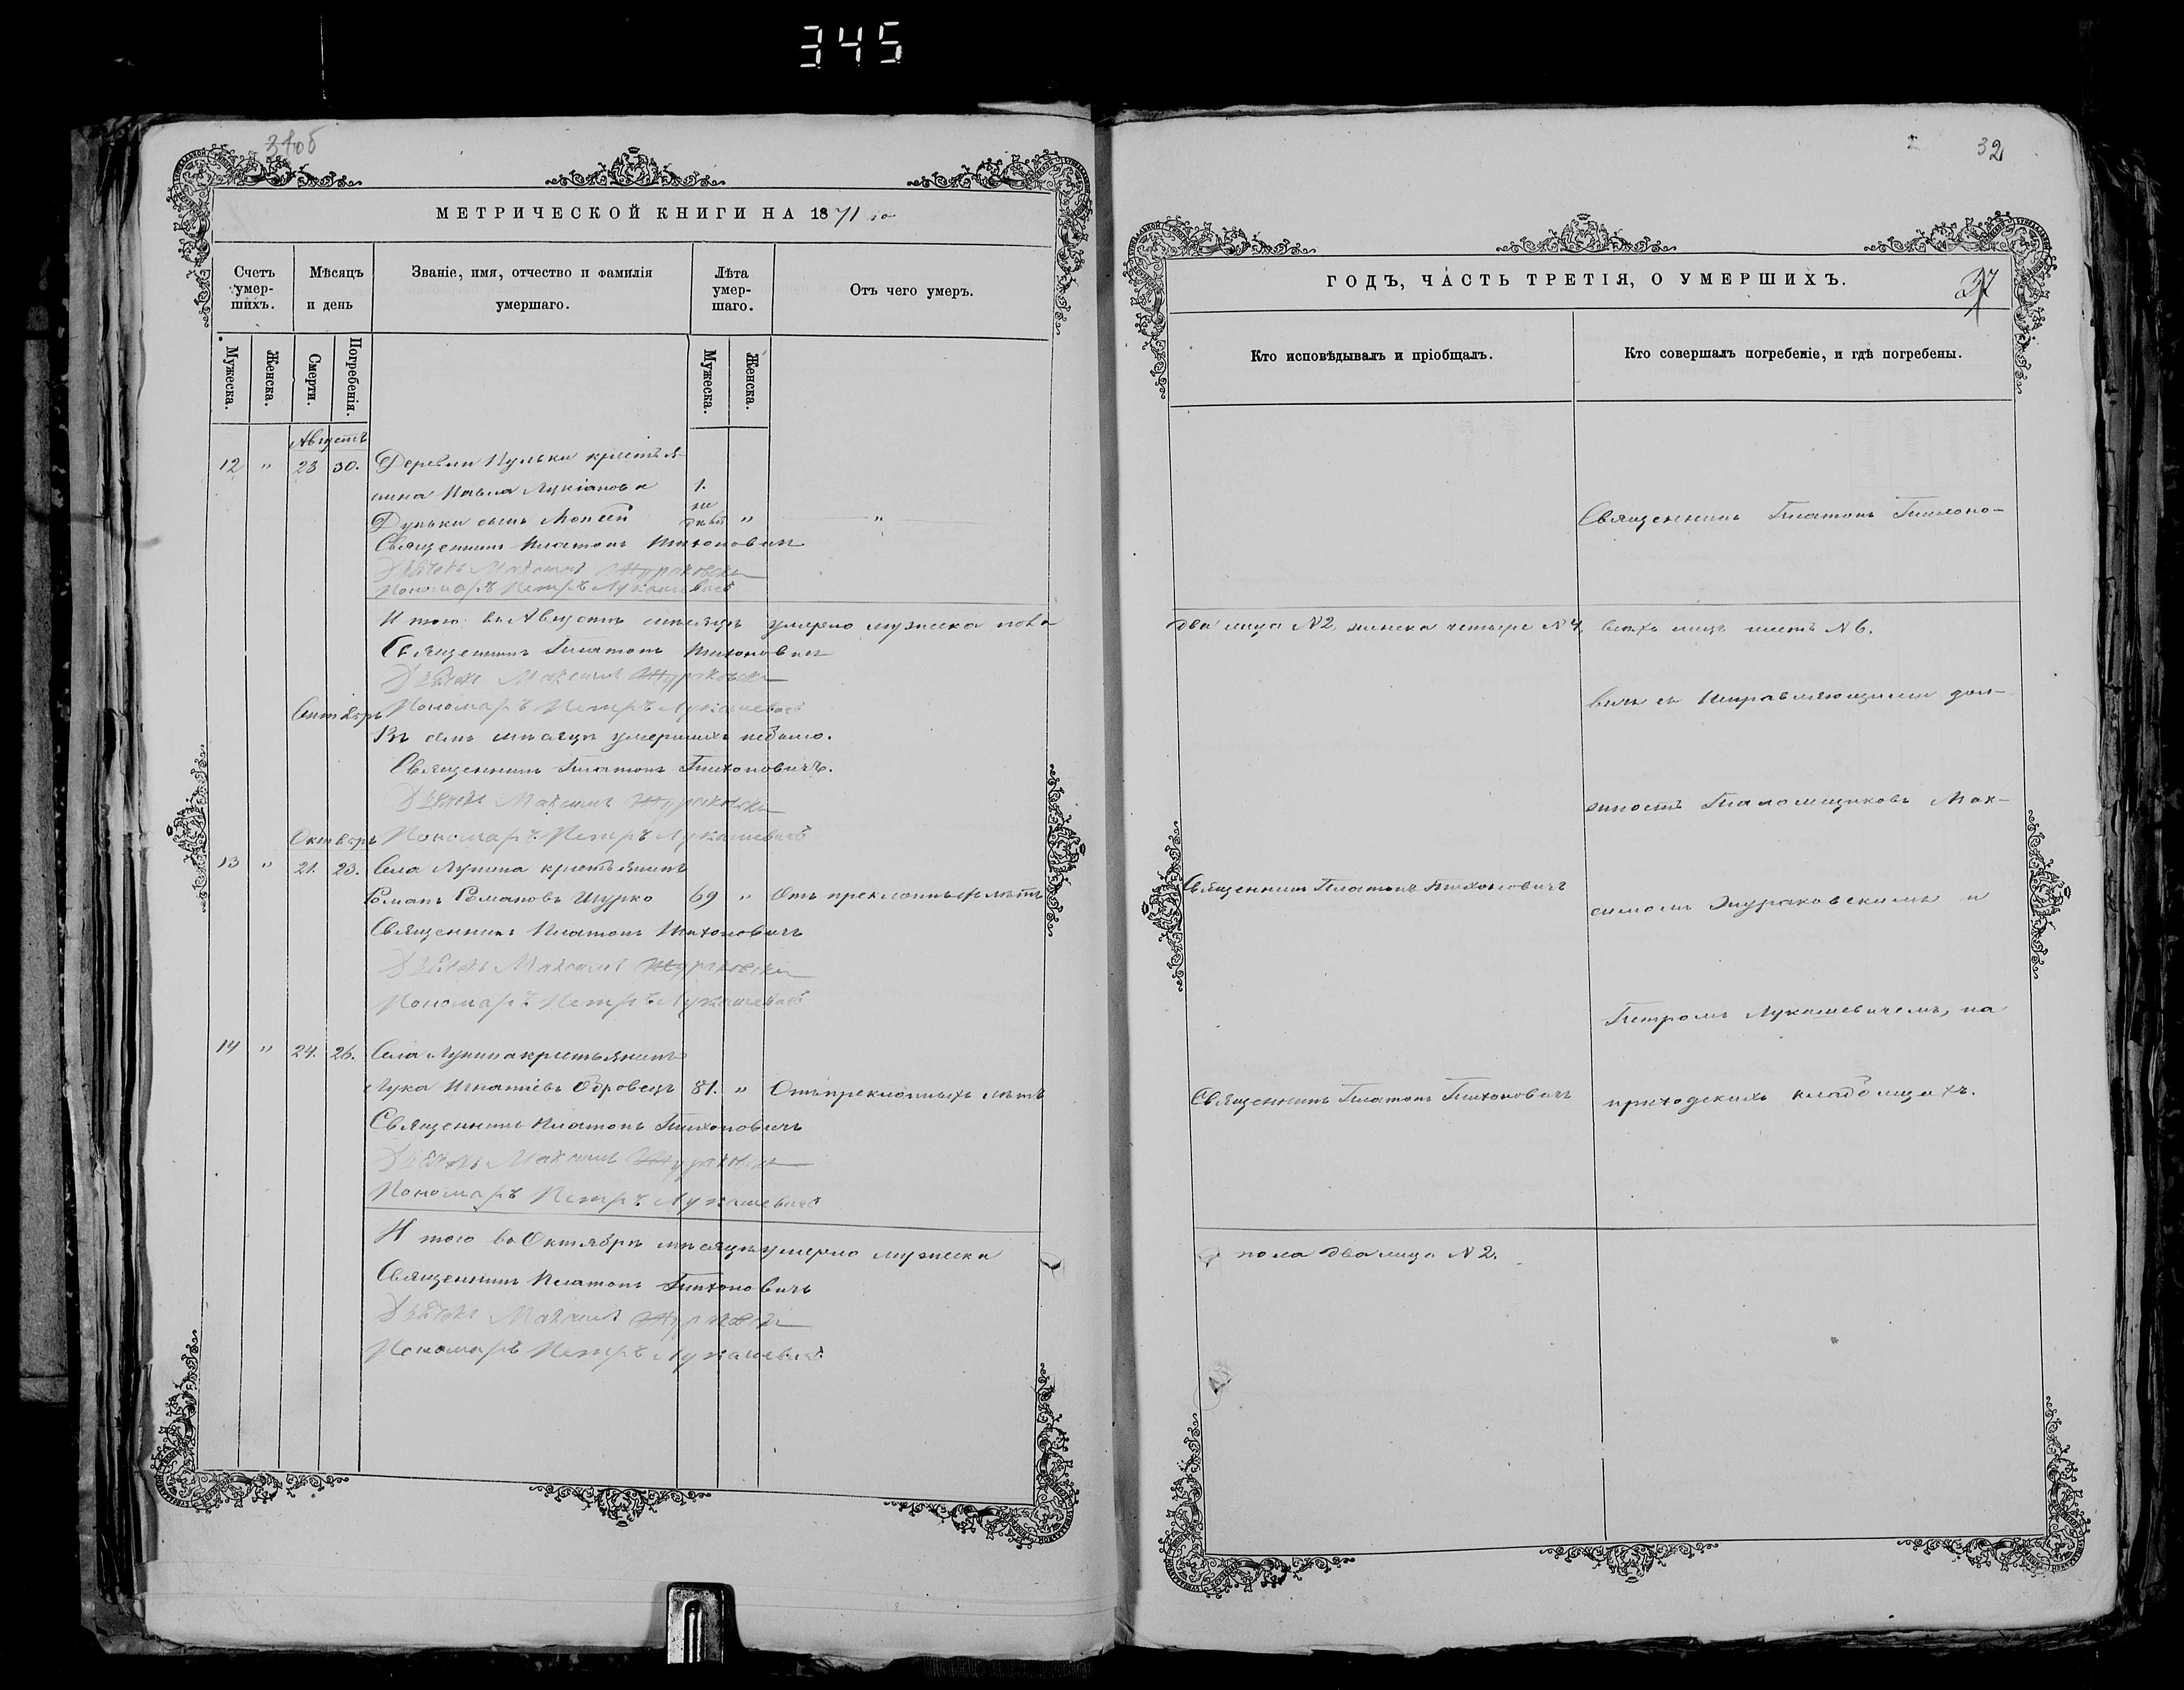 345
32
МЕТРИЧЕСКОЙ КНИГИ НА 1871 го
Счетъ умер-шихъ.
Мѣсяцъ и день
Званіе, имя, отчество и фамилія умершаго.
Лѣта умер-шаго.
Отъ чего умеръ.
Мужеска.
Женска.
Смерти.
Погребенія.
Мужеска.
Женска.
Августъ
12 " 23 30. Деревни Пульки крестья-
нина Павла Лукіанова 1.
Дуньки сынъ Моисей "
Священникъ Платонъ Тихоновичъ
Дьячекъ Максимъ Жураковски
Пономарь Петръ Лукашевичъ
Итого въ Августѣ мѣсяцѣ умерло мужеска пола
Священникъ Платонъ Тихоновичъ
Дьячекъ Максимъ Жураковски
Сентябрь
Пономарь Петръ Лукашевичъ
Въ семъ мѣсяцѣ умершихъ небыло.
Священникъ Платонъ Тихоновичъ.
Дьячекъ Максимъ Жураковски
Октябрь
Пономарь Петръ Лукашевичъ
13 " 21. 23. Села Лунина крестьянинъ
Романъ Романовъ Шурко 69 " Отъ преклонныхъ лѣтъ
Священникъ Платонъ Тихоновичъ
Дьячекъ Максимъ Жураковски
Пономарь Петръ Лукашевичъ
14 " 24. 26. Села Лунина крестьянинъ
Лука Игнатіевъ Обровецъ 81. " Отъ преклонныхъ лѣтъ
Священникъ Платонъ Тихоновичъ
Дьячекъ Максимъ Жураковски
Пономарь Петръ Лукашевичъ
Итого въ Октябрѣ мѣсяцѣ умерло мужеска
Священникъ Платонъ Тихоновичъ
Дьячекъ Максимъ Жураковски
Пономарь Петръ Лукашевичъ
ГОДЪ, ЧАСТЬ ТРЕТІЯ, О УМЕРШИХЪ.
37
Кто исповѣдывалъ и пріобщалъ.
Кто совершалъ погребеніе, и гдѣ погребены.
Священникъ Платонъ Тихоно-
два лица №2, женска четыре №4, всѣхъ лицъ шесть №6.
вичъ съ Исправляющими дол-
жность Псаломщиковъ Мак-
Священникъ Платонъ Тихоновичъ
симомъ Жураковскимъ и
Петромъ Лукашевичемъ, на
Священникъ Платонъ Тихоновичъ
приходскихъ кладбищахъ.
пола два лица №2.